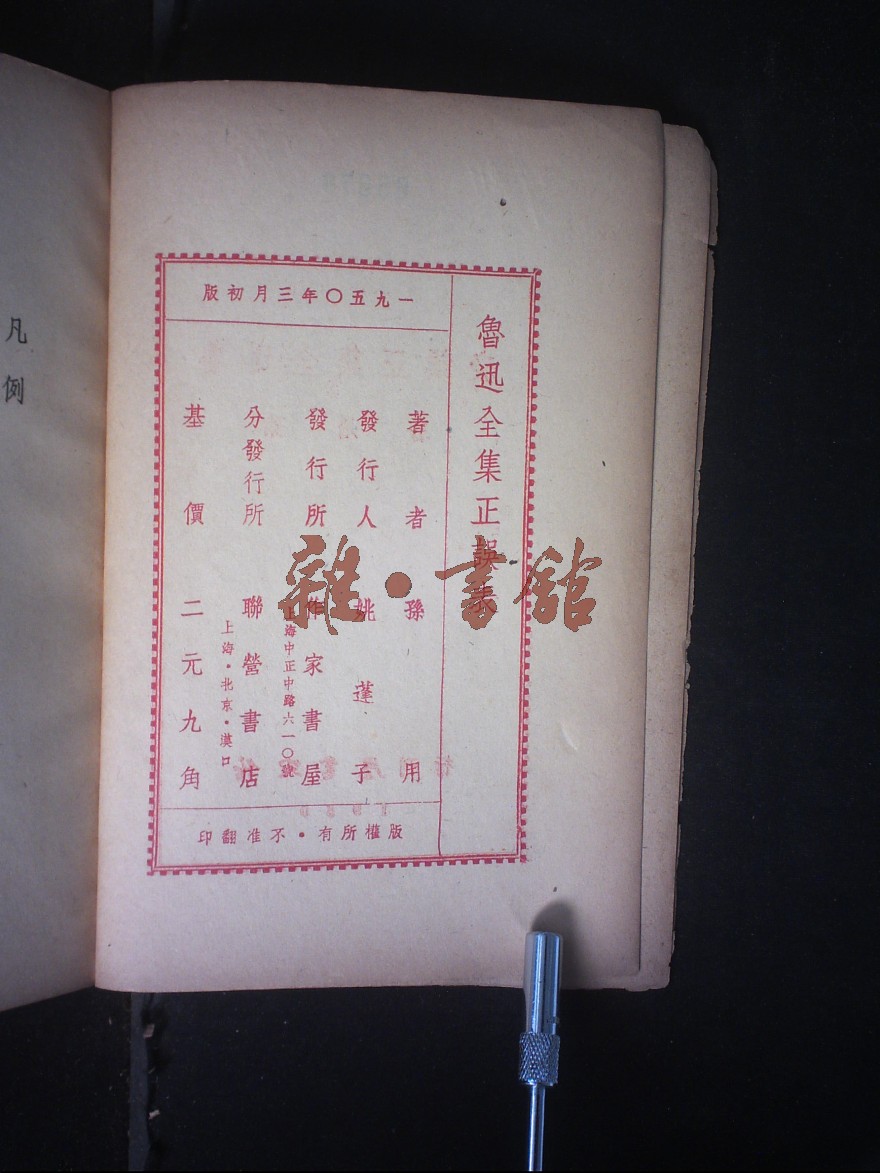 魯迅全集正誤表
一九五〇年三月初版
著者 孫用
發行人 姚蓬子
發行所 作家書屋
上海中正中路六一〇號
分發行所 聯營書店
上海・北京・漢口
基價 二元九角
版權所有・不准翻印
凡例
雜・書館